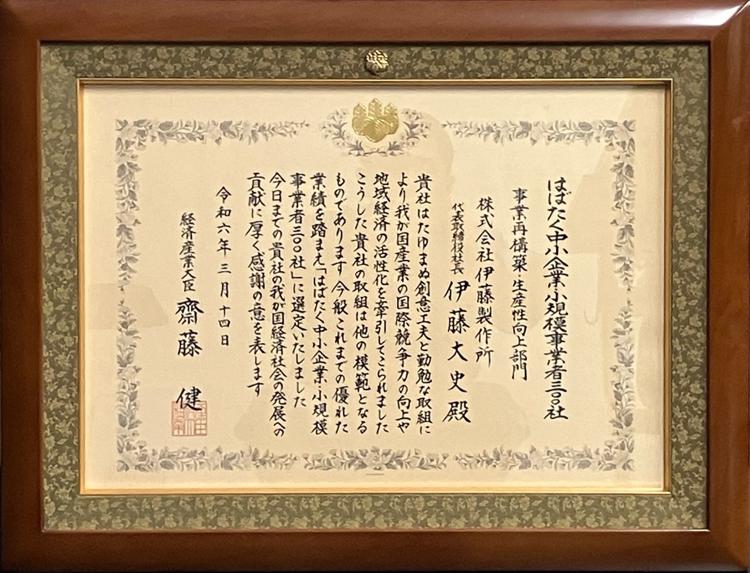 はばたく中小企業・小規模事業者三〇〇社
事業再構築・生産性向上部門
株式会社伊藤製作所
代表取締役社長 伊藤大史殿
貴社はたゆまぬ創意工夫と勤勉な取組に
より我が国産業の国際競争力の向上や
地域経済の活性化を牽引してこられました
こうした貴社の取組は他の模範となる
ものであります 今般これまでの優れた
業績を踏まえ「はばたく中小企業・小規模
事業者三〇〇社」に選定いたしました
今日までの貴社の我が国経済社会の発展への
貢献に厚く感謝の意を表します
令和六年三月十四日
経済産業大臣 齋藤健